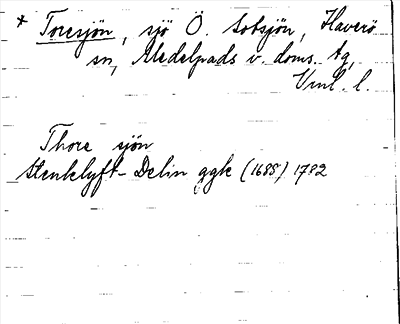 * Toresjön, sjö Ö. Lobsjön, Haverö
sn, Medelpads v. doms. tg,
Vnl. l.
Thore sjön
Stenklyft-Delin ggk (1688) 1782